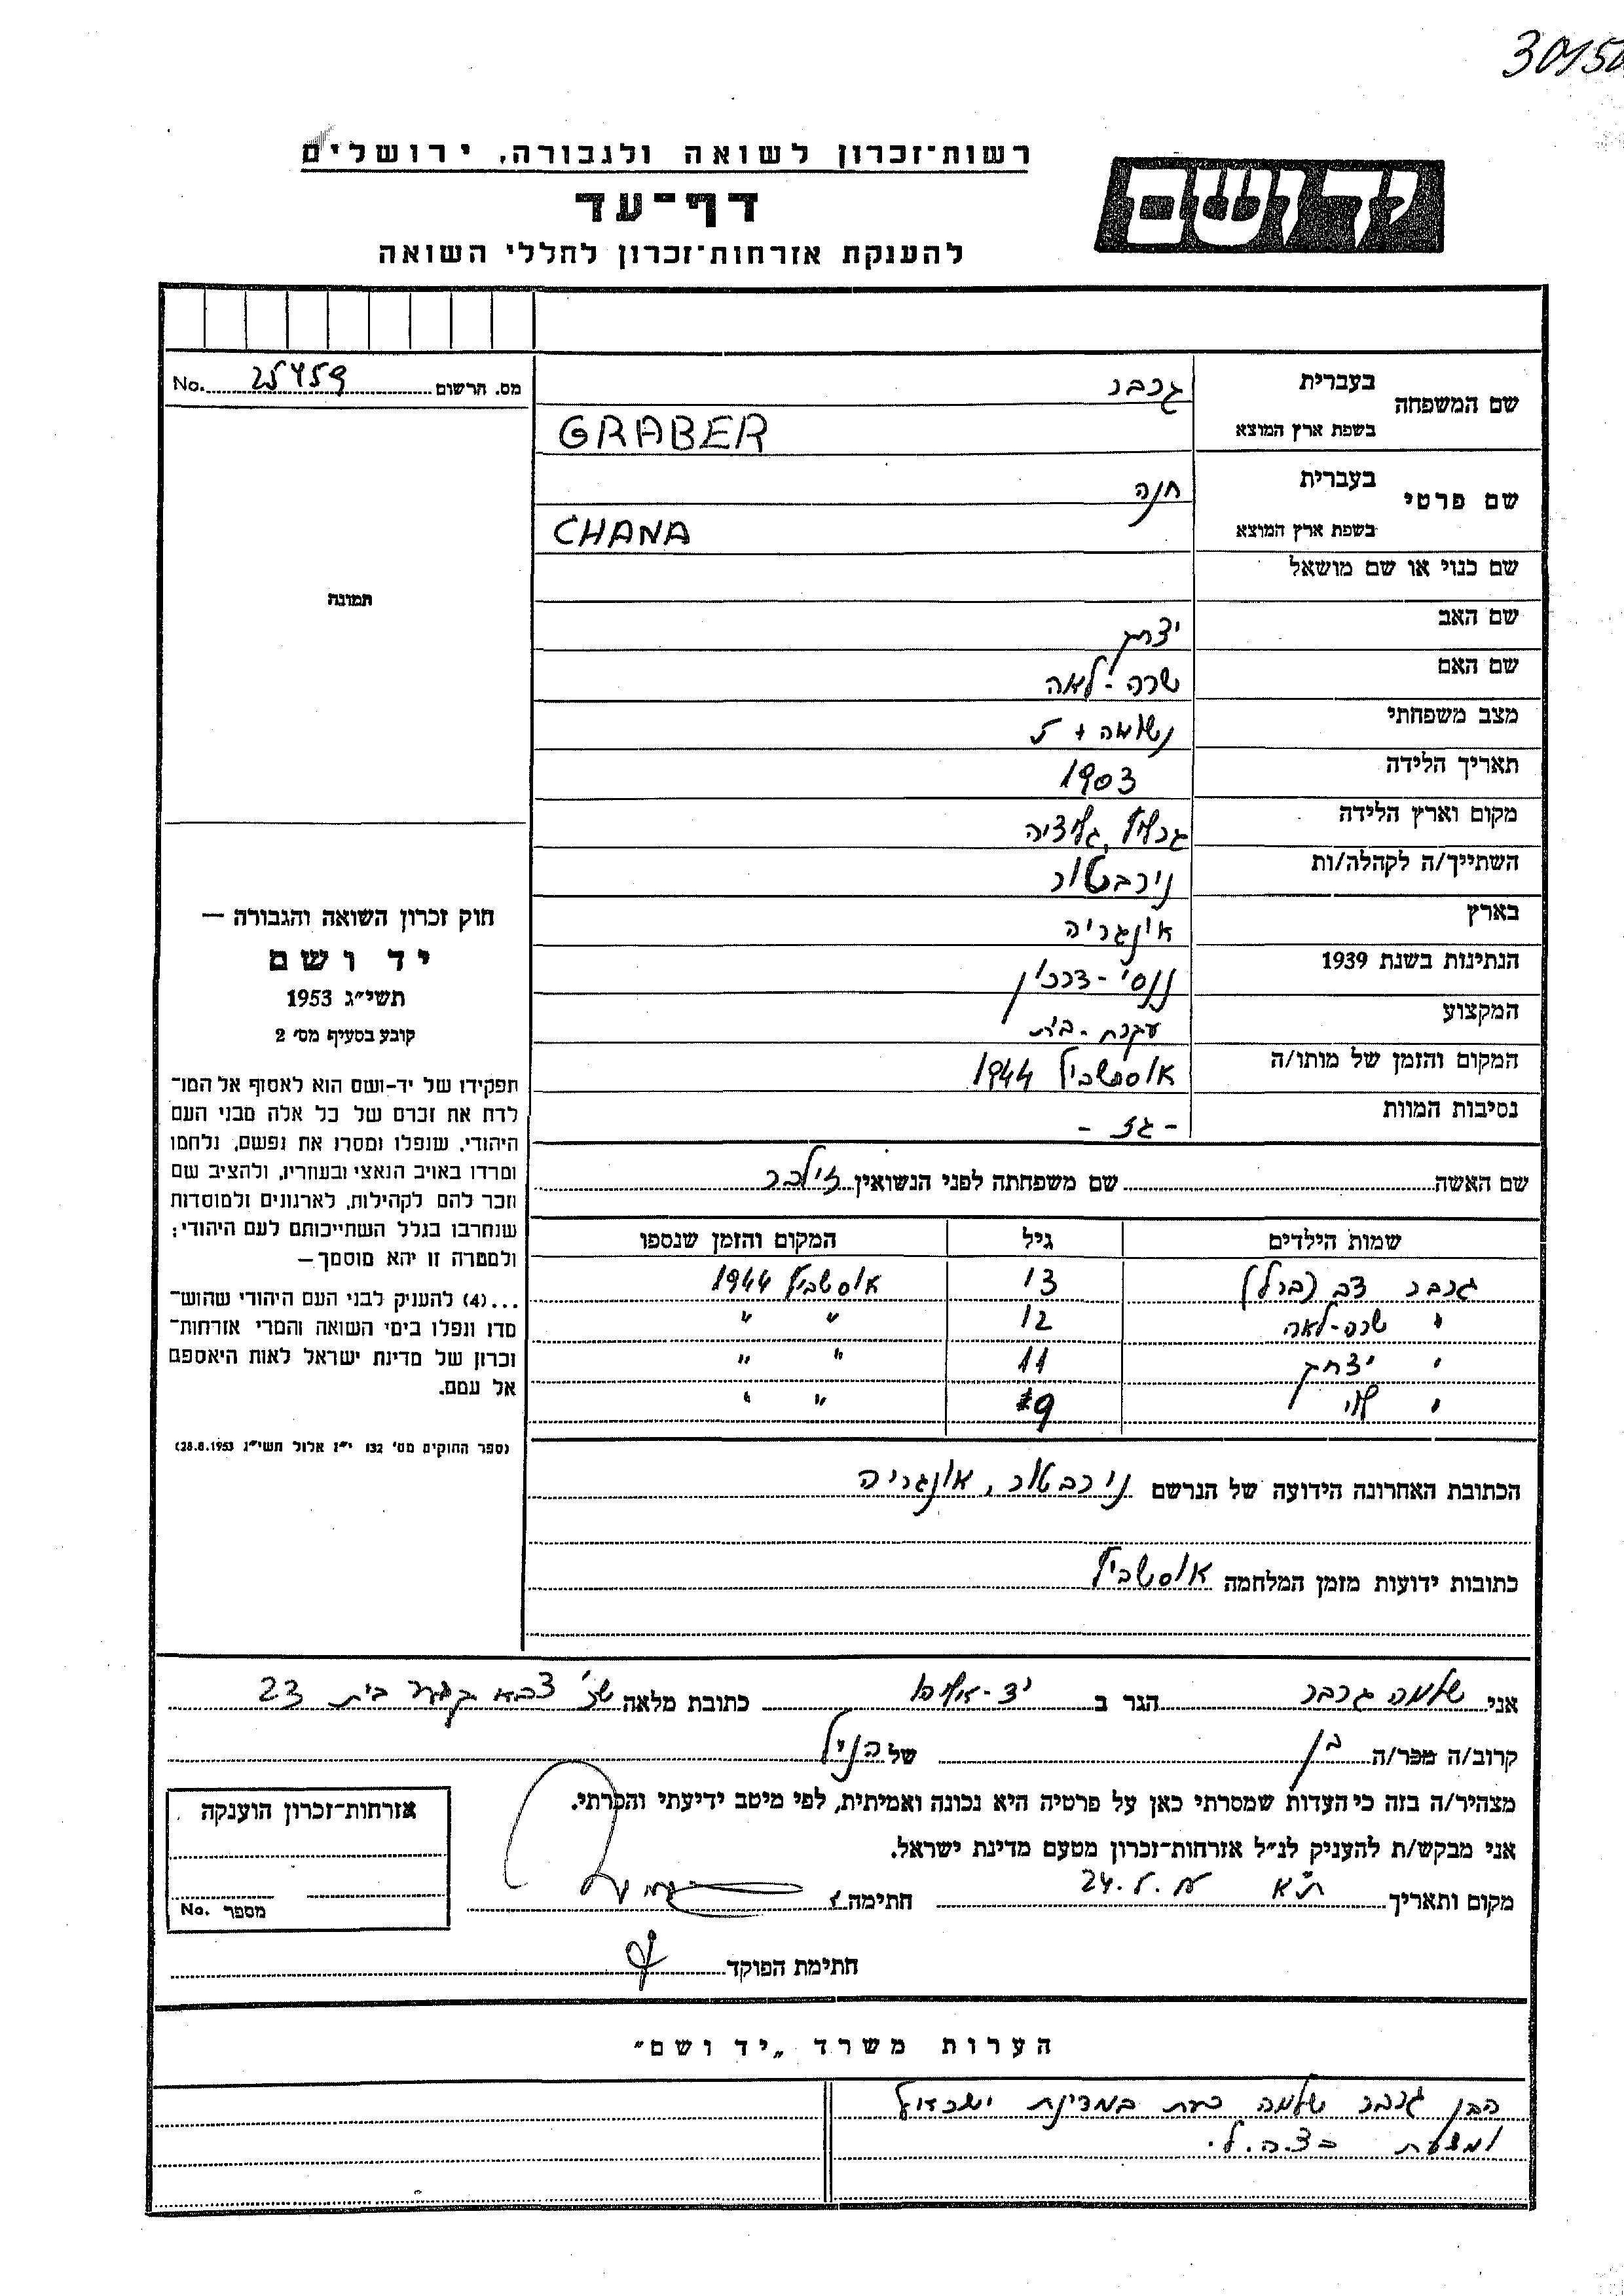 רשות־זכרון לשואה ולגבורה, ירושלים
דף־עד
להענקת אזרחות־זכרון לחללי השואה
יד ושם
מס. הרשום 25459 No.
שם המשפחה
בעברית גרבר
בשפת ארץ המוצא GRABER
שם פרטי
בעברית חנה
בשפת ארץ המוצא CHANA
שם כנוי או שם מושאל
שם האב יצחק
שם האם שרה-לאה
מצב משפחתי נשואה + 5
תאריך הלידה 1903
מקום וארץ הלידה גליציה
השתייך/ה לקהלה/ות נירבטור
בארץ אונגריה
הנתינות בשנת 1939 ננסי-דרכון
המקצוע עקרת-בית
המקום והזמן של מותו/ה אוסשביץ 1944
נסיבות המוות - גז -
תמונה
חוק זכרון השואה והגבורה —
יד ושם
תשי״ג 1953
קובע בסעיף מס׳ 2
תפקידו של יד-ושם הוא לאסוף אל המו־
לדת את זכרם של כל אלה מבני העם
היהודי, שנפלו ומסרו את נפשם, נלחמו
ומרדו באויב הנאצי ובעוזריו, ולהציב שם
וזכר להם לקהילות, לארגונים ולמוסדות
שנחרבו בגלל השתייכותם לעם היהודי;
ולמטרה זו יהא מוסמך —
...(4) להעניק לבני העם היהודי שהוש־
מדו ונפלו בימי השואה והמרי אזרחות־
זכרון של מדינת ישראל לאות היאספם
אל עמם.
(ספר החוקים מס׳ 132 י״ז אלול תשי״ג 28.8.1953)
שם האשה שם משפחתה לפני הנשואין זילבר
שמות הילדים גיל המקום והזמן שנספו
גרבר דב (ברל) 13 אוסשביץ 1944
" שרה-לאה 12 " "
" יצחק 11 " "
" 9 " "
הכתובת האחרונה הידועה של הנרשם נירבטור, אונגריה
כתובות ידועות מזמן המלחמה אוסשביץ
אני שלמה גרבר הגר ב יד-אליהו כתובת מלאה שכ׳ צבא קבע בית 23
קרוב/ה מכר/ה בן של הנ״ל
מצהיר/ה בזה כי העדות שמסרתי כאן על פרטיה היא נכונה ואמיתית, לפי מיטב ידיעתי והכרתי.
אני מבקש/ת להעניק לנ״ל אזרחות־זכרון מטעם מדינת ישראל.
מקום ותאריך ת״א חתימה
אזרחות־זכרון הוענקה
מספר No.
חתימת הפוקד
הערות משרד „יד ושם״
הבן גרבר שלמה כעת במדינת ישראל
ומשרת בצ.ה.ל.